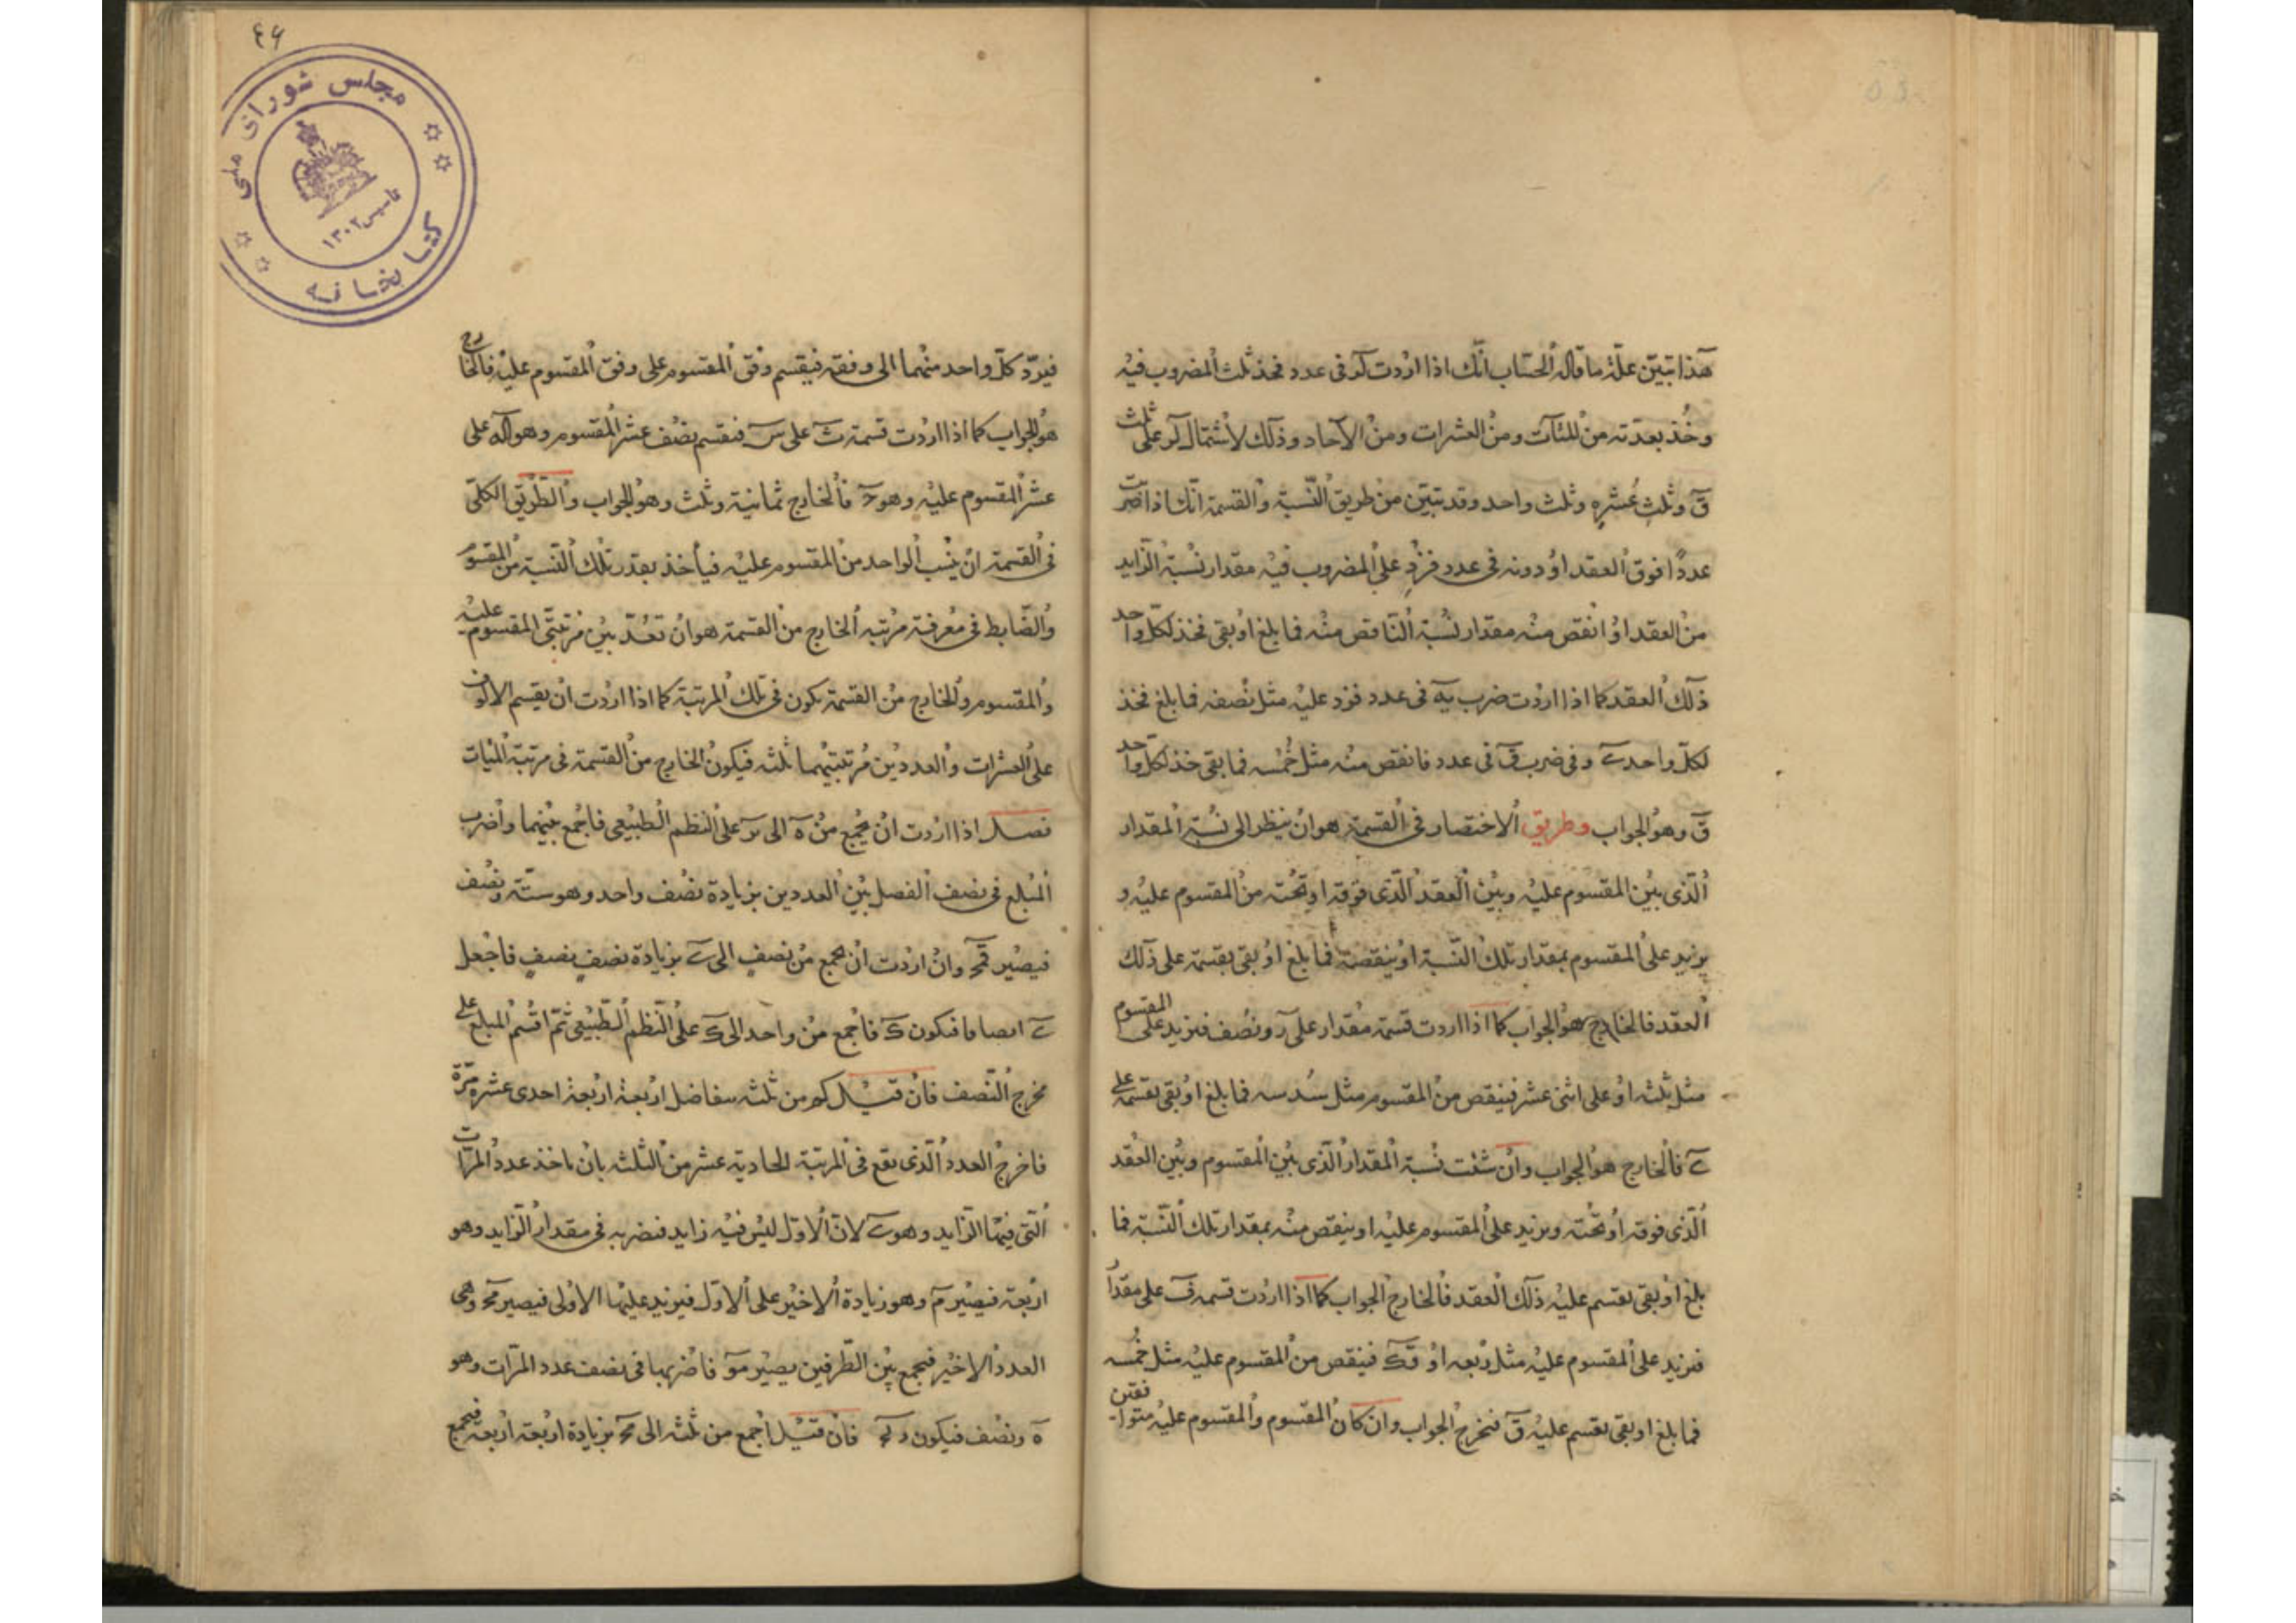 هذا تبيّن علّة ما قاله الحسّاب انّك اذا اردت لو فى عدد فخذ ثلث المضروب فيه
وخُذ بعدّته من المئآت ومن العشرات ومن الآحاد وذلك لاشتمال لو على ثلث
قَ وثلث عُشره وثلث واحد وقد تبيّن من طريق النّسبة والقسمة انّك اذا ضربت
عددًا فوق العقد او دونه فى عدد فزِد على المضروب فيه مقدار نسبة الزايد
من العقد او انقص منه مقدار نسبة النّاقص منه فما بلغ او بقى فخذ لكلّ واحد
ذلك العقد كما اذا اردت ضرب يه فى عدد فزد عليه مثل نصفه فما بلغ فخذ
لكلّ واحد ى وفى ضرب ف فى عدد فانقص منه مثل خُمسه فما بقى خذ لكلّ واحد
ق وهو الجواب وطريق الاختصار فى القسمة هو ان ينظر الى نسبة المقدار
الّذى بين المقسوم عليه وبين العقد الّذى فوقه او تحته من المقسوم عليه و
يزيد على المقسوم بمقدار تلك النّسبة او ينقصه فما بلغ او بقى يقسمه على ذلك
العقد فالخارج هو الجواب كما اذا اردت قسمة مقدار على ز ونصف فنزيد على المقسوم
مثل ثلثه او على اثنى عشر فينقص من المقسوم مثل سُدسه فما بلغ او بقى يقسمه على
ى فالخارج هو الجواب وان شئت نسبة المقدار الّذى بين المقسوم وبين العقد
الّذى فوقه او تحته ويزيد على المقسوم عليه او ينقص منه بمقدار تلك النّسبة فما
بلغ او بقى يقسم عليه ذلك العقد فالخارج الجواب كما اذا اردت قسمة ف على مقدار
فنزيد على المقسوم عليه مثل ربعه او قك فينقص من المقسوم عليه مثل خُمسه
فما بلغ او بقى يقسم عليه ق فيخرج الجواب وان كان المقسوم والمقسوم عليه متوافقين
٤۶
مجلس شوراى ملى
كتابخانه
تاسيس ١٣٠٢
فيردّ كلّ واحد منهما الى وفقه فيقسم وفق المقسوم على وفق المقسوم عليه فالخارج
هو الجواب كما اذا اردت قسمة ث على س فنقسم نصف عشر المقسوم وهو كه على
عشر المقسوم عليه وهو ج فالخارج ثمانية وثلث وهو الجواب والطّريق الكلّى
فى القسمة ان ينسب الواحد من المقسوم عليه فيأخذ بقدر تلك النّسبة من المقسوم
والضّابط فى معرفة مرتبه الخارج من القسمة هو ان تعدّ بين مرتبتى المقسوم عليه
والمقسوم والخارج من القسمة يكون فى تلك المرتبة كما اذا اردت ان يقسم الالوف
على العشرات والعددين مرتبتيهما ثلثه فيكون الخارج من القسمة فى مرتبة المئات
فصل اذا اردت ان يجمع من ه الى ىو على النظم الطبيعى فاجمع بينهما واضرب
المبلغ فى نصف الفصل بين العددين بزيادة نصف واحد وهو ستّة ونصف
فيصير قمج وان اردت ان يجمع من نصف الى ى بزيادة نصفٍ نصفٍ فاجعل
ى انصافا فيكون ك فاجمع من واحد الى ك على النّظم الطّبيعى ثمّ اقسم المبلغ على
مخرج النّصف فان قيل كم من ثلثه بتفاضل اربعة اربعة احدى عشره مرّة
فاخرج العدد الّذى يقع فى المرتبة الحادية عشر من الثلثه بان ياخذ عدد المرّات
الّتى فيها الزّايد وهو ى لانّ الاوّل ليس فيه زايد فنضربه فى مقدار الزّايد وهو
اربعة فيصير م وهو زيادة الاخير على الاوّل فيزيد عليها الاولى فيصير مج وهى
العدد الاخير فيجمع بين الطّرفين يصير مو فاضربها فى نصف عدد المرّات وهو
ه ونصف فيكون رنج فان قيل اجمع من ثلثه الى مج بزيادة اربعة اربعة فيجمع